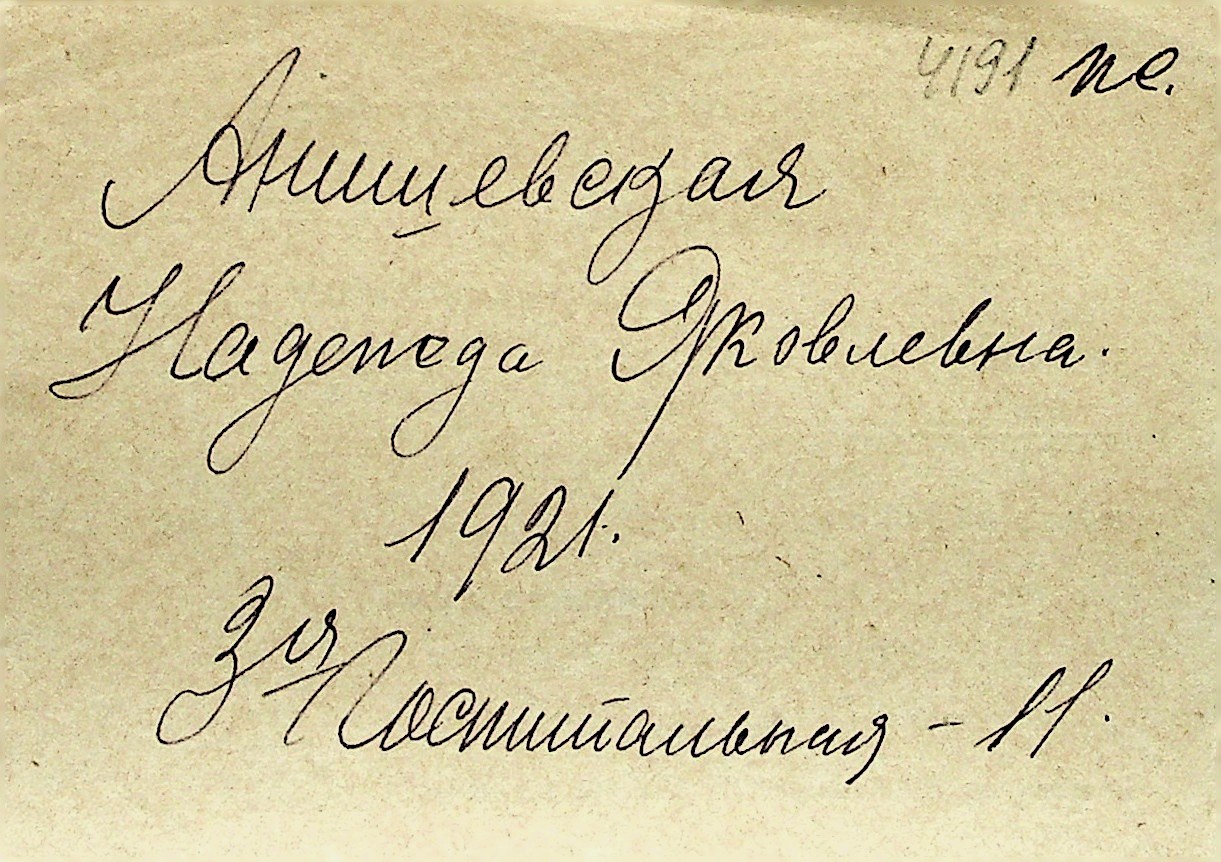 4191 пе.
Анишевская
Надежда Яковлевна.
1921.
3я Госпитальная - 11.